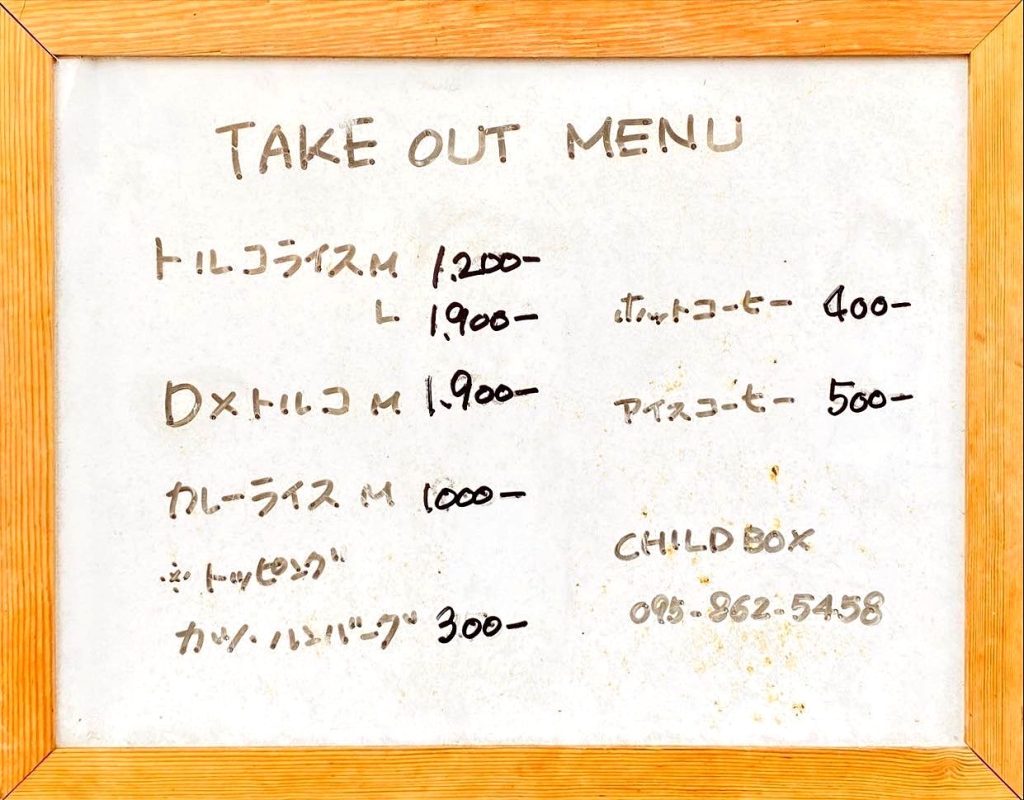 TAKE OUT MENU
トルコライス M 1,200-
L 1,900-
DXトルコ M 1,900-
カレーライス M 1000-
※トッピング
カツ・ハンバーグ 300-
ホットコーヒー 400-
アイスコーヒー 500-
CHILD BOX
095-862-5458